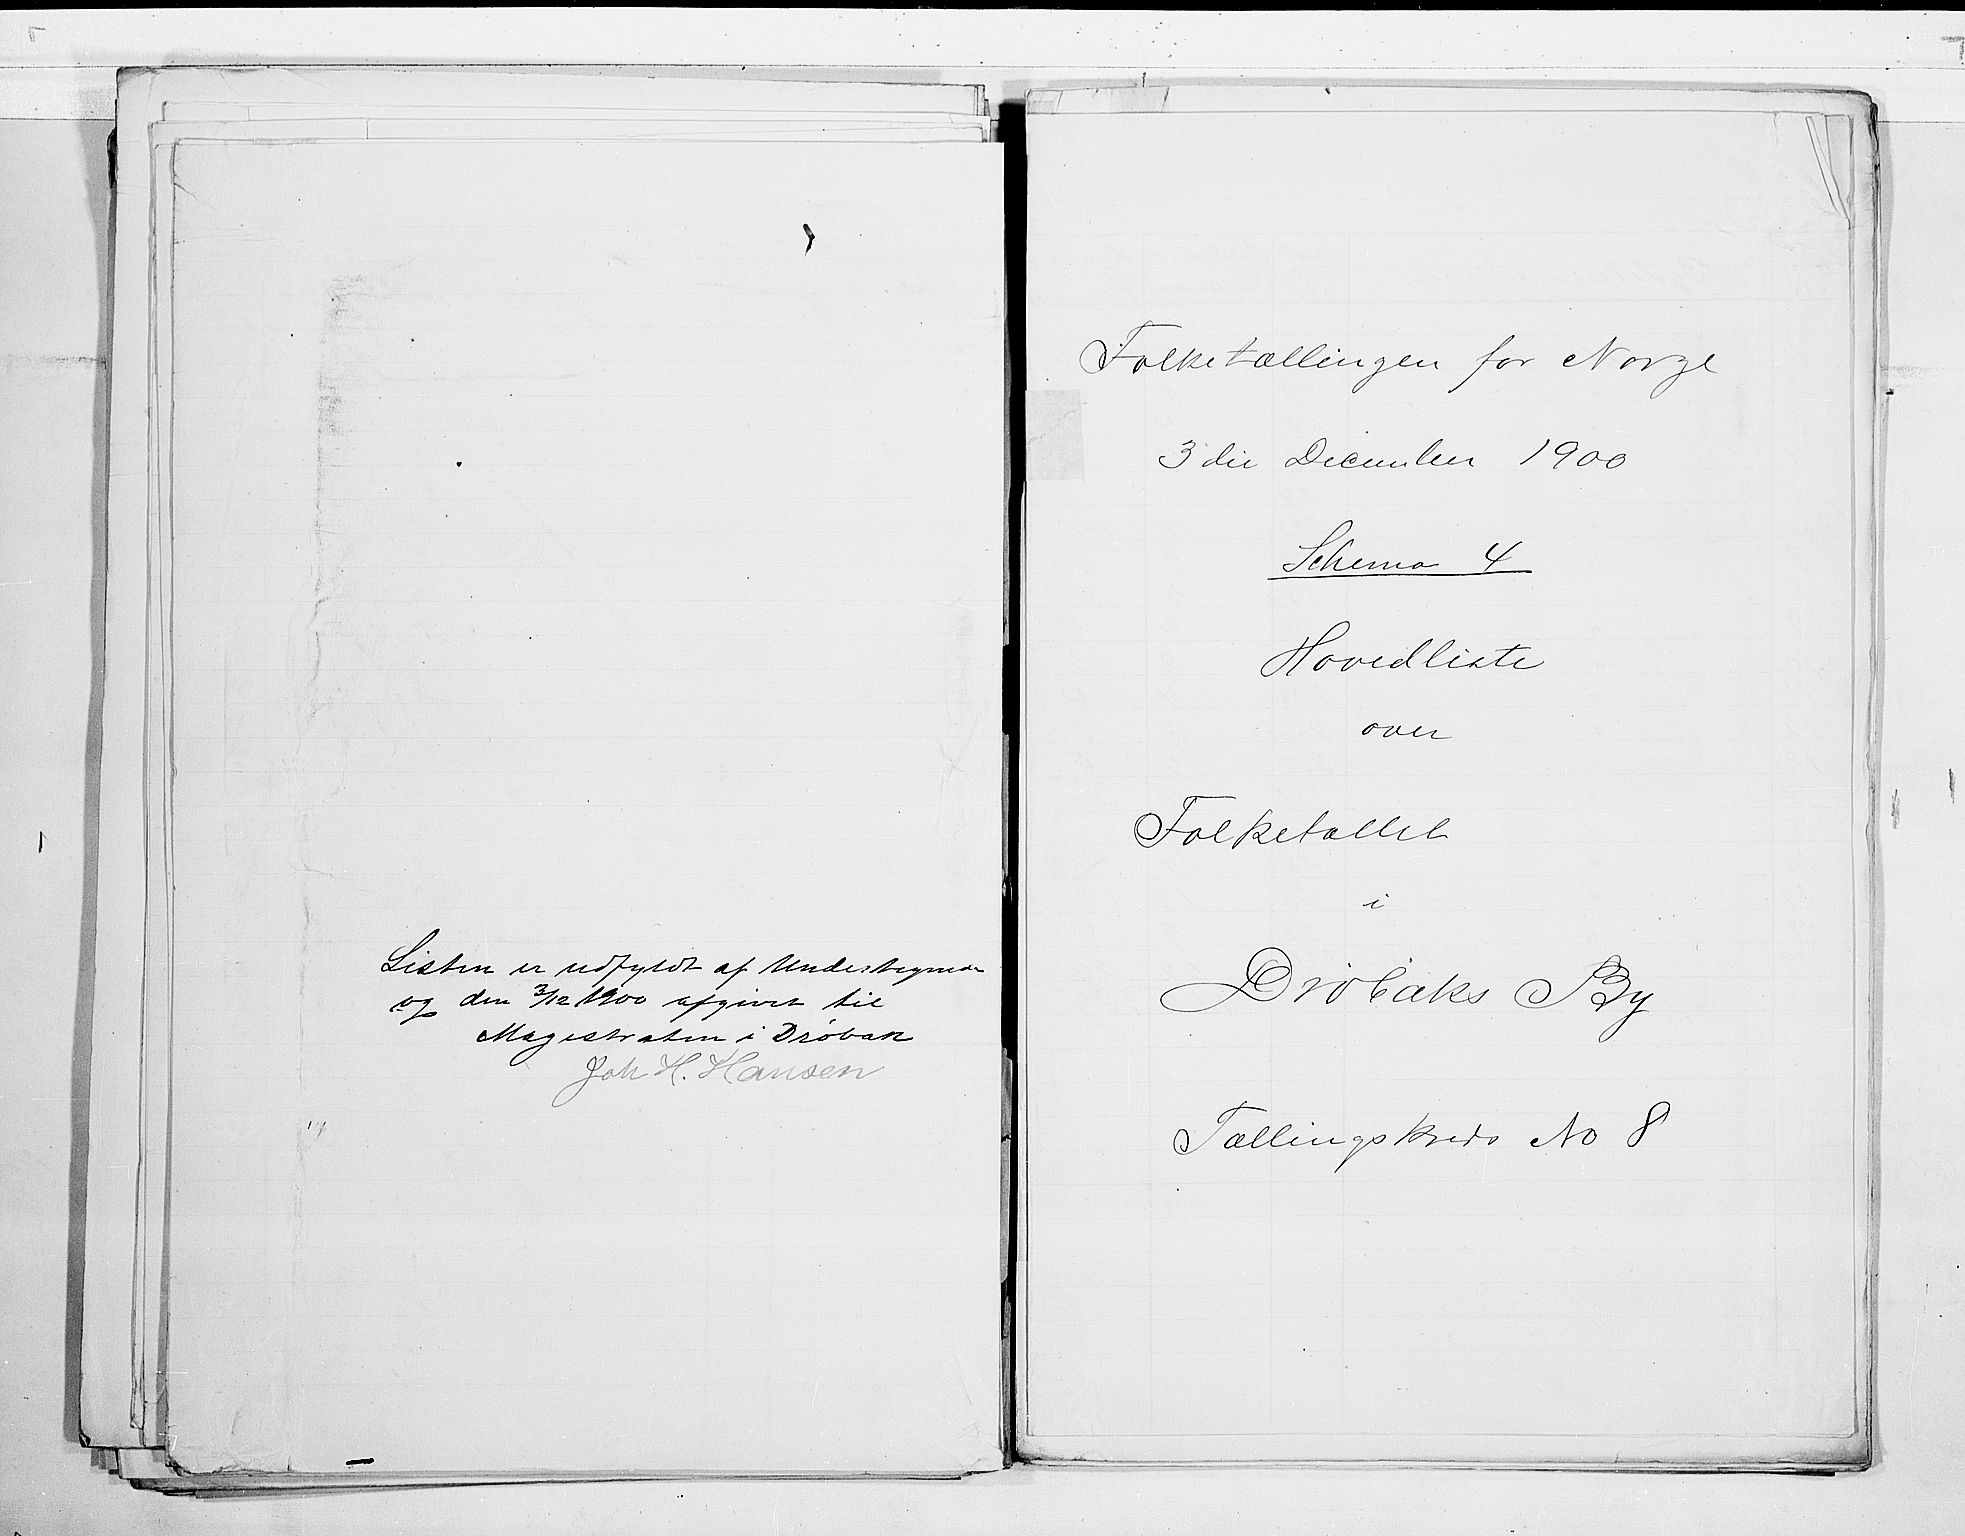 Listen er udfyldt af Undertegnede
og den 3/12 1900 afgivet til
Magistraten i Drøbak
Joh H. Hansen
Folketællingen for Norge
3 die December 1900
Schema 4
Hovedliste
over
Folketallet
i
Drøbaks By
Tællingskreds No 8